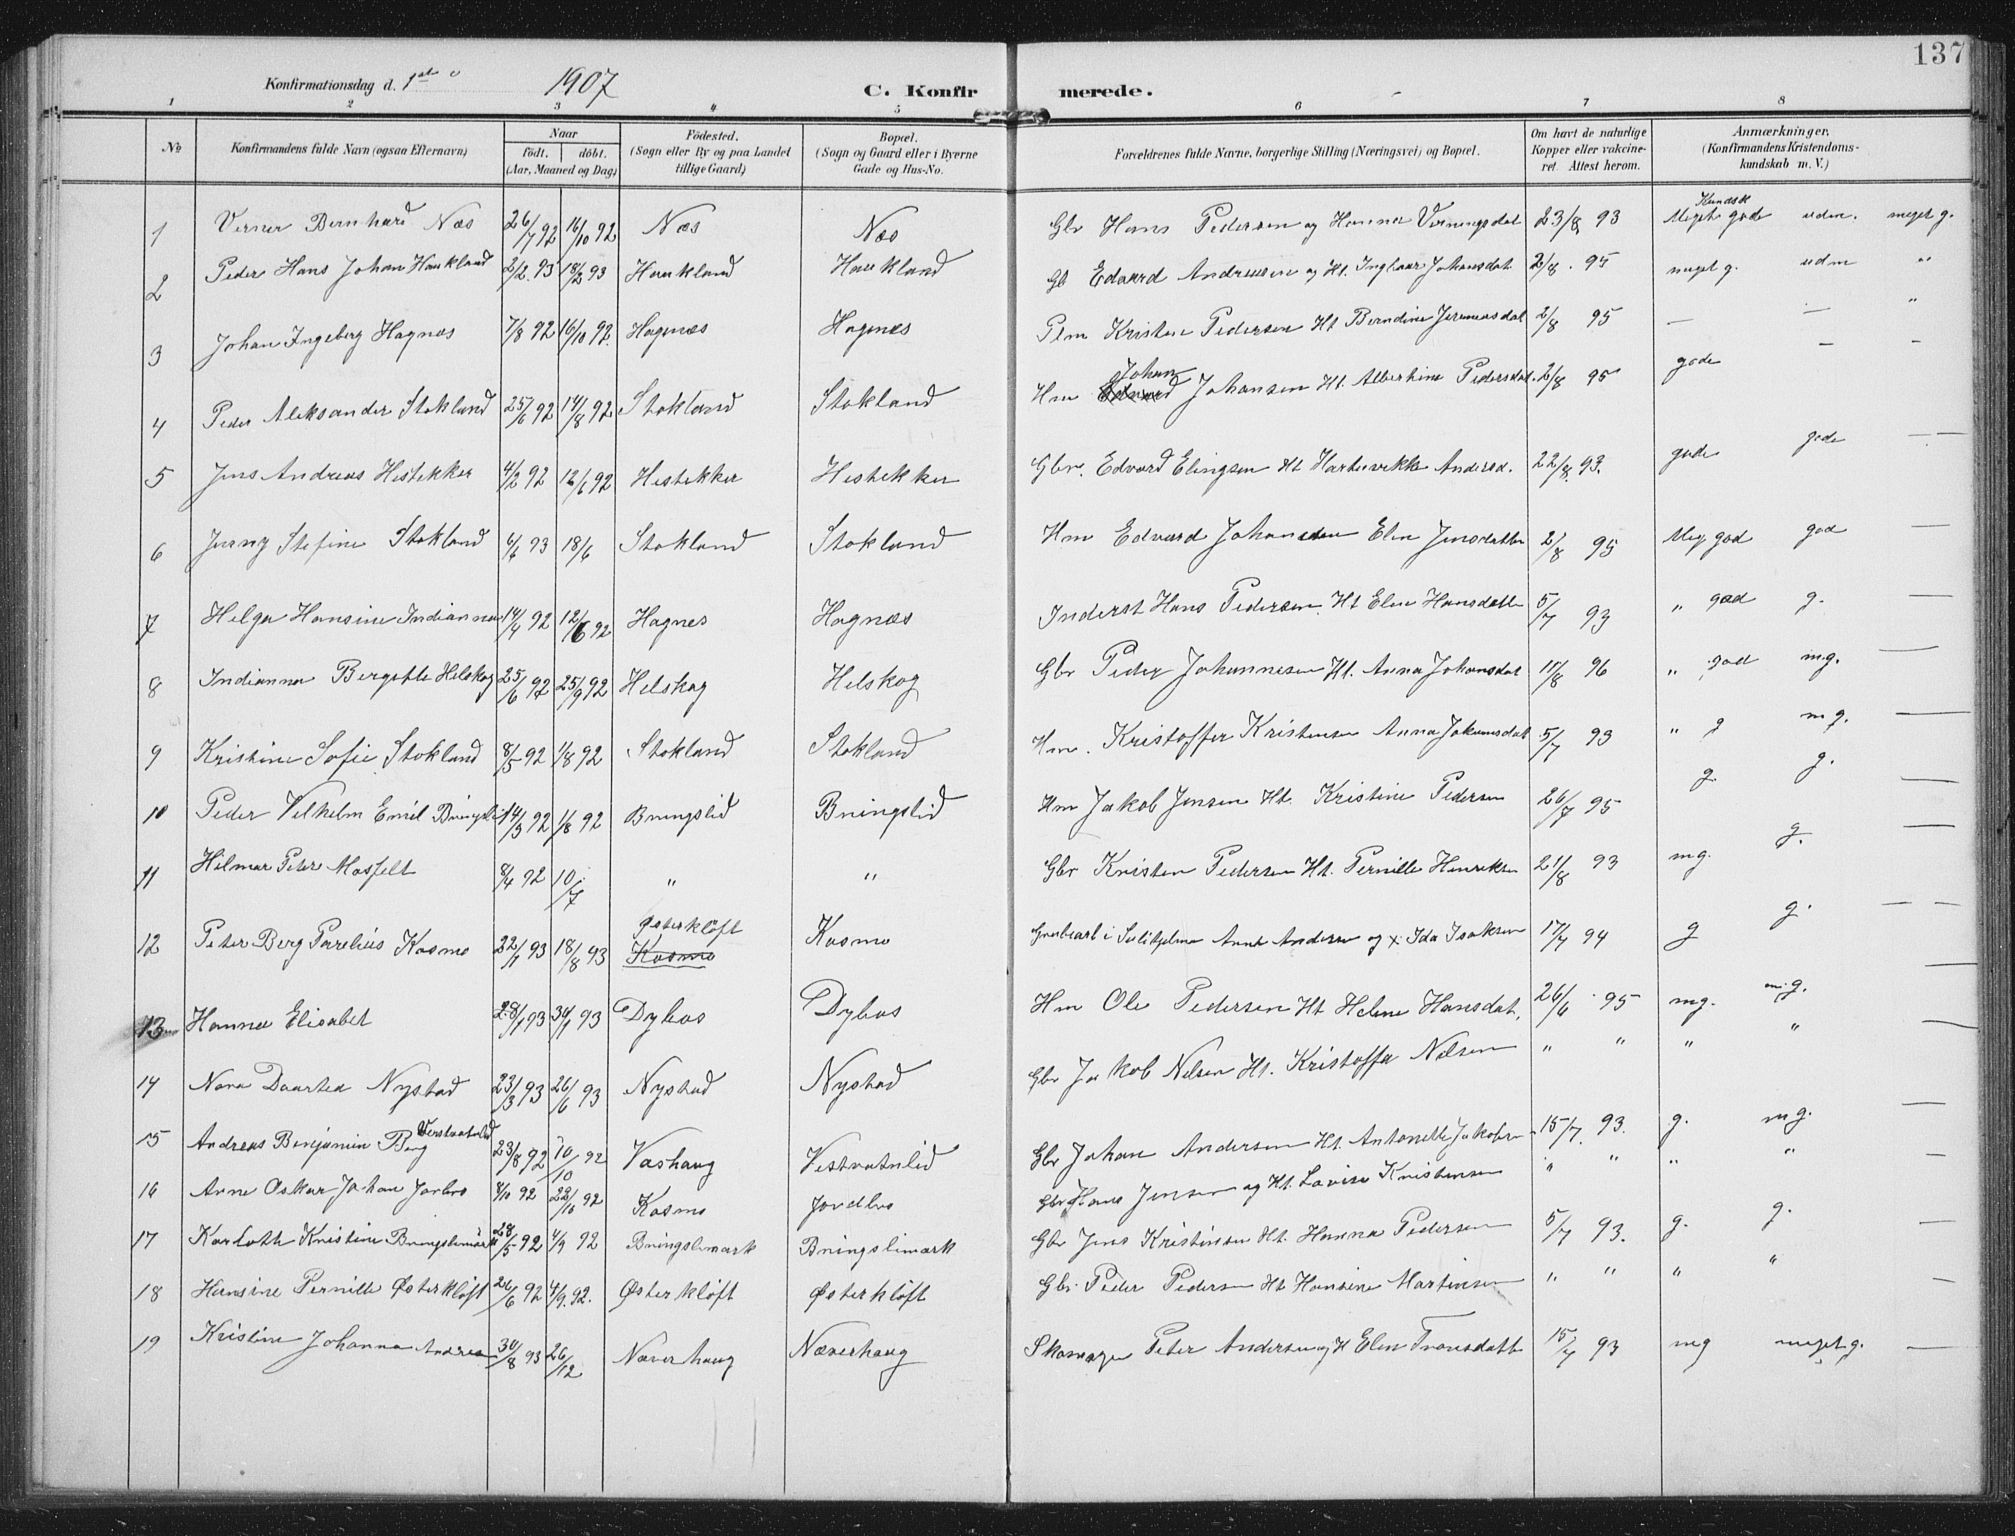 137
Konfirmationsdag d. 1ste 1907 C. Konfirmerede.
1 2 3 4 5 6 7 8
No
Konfirmandens fulde Navn (ogsaa Efternavn)
Naar
födt. döbt.
(Aar, Maaned og Dag)
Födested.
(Sogn eller By og paa Landet
tillige Gaard)
Bopæl.
(Sogn og Gaard eller i Byerne
Gade og Hus-No.
Forældrenes fulde Navne, borgerlige Stilling (Næringsvei) og Bopæl.
Om havt de naturlige
Kopper eller vakcine-
ret. Attest herom.
Anmærkninger.
(Konfirmandens Kristendoms-
kundskab m. V.)
1 Verner Bernhard Næs 26/7 92 16/10 92 Næs Næs Gbr Hans Pedersen og Hanna Verningsdat 23/8 93 Kundsk Meget gode udm. meget g.
2 Peder Hans Johan Haukland 2/2. 93 18/2 93 Haukland Haukland Gb Edvard Andreasen og Ht. Ingbaar Johansdat 2/8. 95 meget g. udm "
3 Johan Ingeberg Hagnæs 7/8 92 16/10 92. Hagnæs Hagnæs Plm Kristen Pedersen Ht Berndine Jeremiasdat 2/8 95 — — "
4 Peder Aleksander Stokland 25/6 92 14/8 92 Stokland Stokland Hm Johan Johansen Ht. Albertine Pedersdat. 2/8 95 gode — -
5 Jens Andreas Hestekker 4/2 92 12/6 92 Hestekker Hestekker Gbr. Edvard Elingsen Ht Hartvikke Andersd. 22/8. 93. gode gode —
6 Jenny Stefine Stokland 6/6 93 18/6 Stokland Stokland Hm Edvard Johansen Elen Jensdatter 2/8 95 Meg god god —
7 Helga Hansine Indianna 14/4 92 12/6 92 Hagnes Hagnæs Inderst Hans Pedersen Ht Elen Hansdatte 5/7 93 " god g. —
8 Indianna Bergitte Helskog 25/6 92 25/9 92 Helskog Helskog Gbr Peder Johannesen Ht. Anna Johansdat 11/8 96 " god m.g. —
9 Kristine Sofie Stokland 8/5 92 1/8 92 Stokland Stokland Hm. Kristoffer Kristensen Anna Johansdat 5/7 93 " g m g. —
10 Peder Vilhelm Emil Bringsli 14/3 92 1/8 92 Bringslid Bringslid Hm Jakob Jensen Ht. Kristine Pedersen 26/7 95 g. g. —
11 Hilmar Peter Mosfelt 8/4 92 10/7 " " Gbr Kristen Pedersen Ht. Pernille Henriksen 21/8 93 mg. g. —
12 Peter Berg Parelius Kosmo 22/1 93 18/8 93 Østerkløft Kosmo Kosmo Grubearb i Sulitjelma Arnt Andersen og x Ida Isaksen 17/7 94 g g. — —
13 Hanna Elisabet 28/1 93 30/1 93 Dybos Dybos Hm Ole Pedersen Ht Helene Hansdat. 26/6 95 mg. m.g. —
14 Nora Daartea Nystad 23/3 93 26/6 93 Nystad Nystad Gbr Jakob Nelsen Ht. Kristoffa Nelsen " " " " —
15 Andreas Benjamin Berg Vestvatnlid 23/8 92 10/10 92 Vashaug Vestvatnlid Gbr Johan Andersen Ht. Antonette Jakobsen 15/7. 93. g. m g. —
16 Arne Oskar Johan Jorbro 4/10 92 22/10 92 Kosmo Jordbro Gbr Hans Jensen og Ht. Lovise Kristensen " " " " —
17 Karloth Kristine Bringslimark 28/5 92 4/9 92 Bringslimark Bringslimark Gbr Jens Kristensen Ht. Hanna Pedersen 5/7 93. g. g. —
18 Hansine Pernille Østerkløft 26/6 92 4/9. 92. Østerkløft Østerkløft Gbr. Peder Pedersen Ht Hansine Martinsen " " " " —
19 Kristine Johanna Andrea 30/8 93 26/12 Næverhaug Næverhaug Skomager Peter Andersen og H Elen Tronsdatte 15/7 93 mg meget g. —